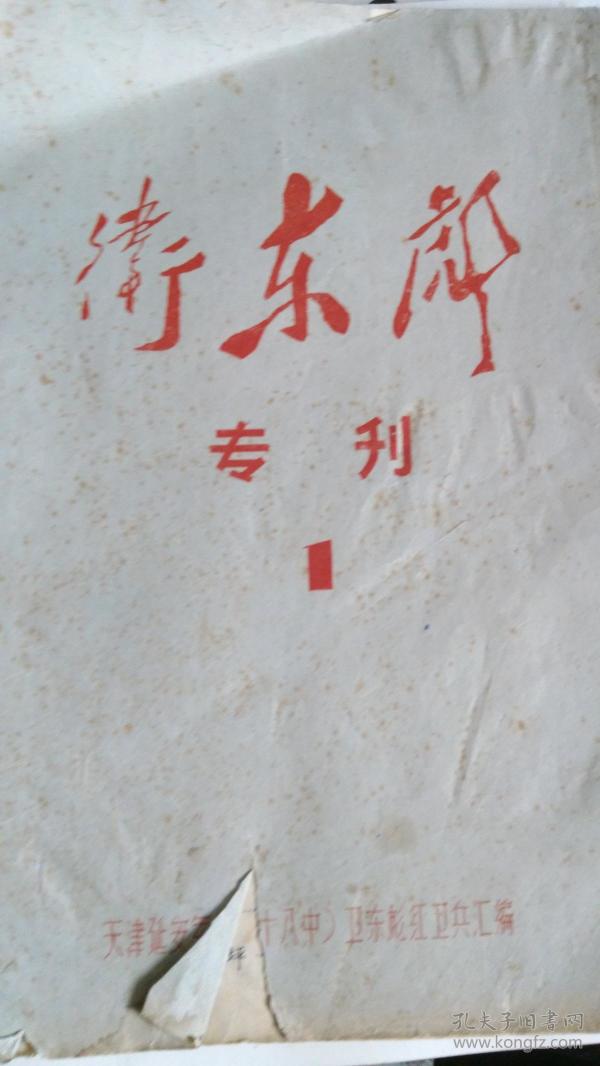 衛东彪
专刊
1
天津延安 十八中）卫东彪红卫兵汇编
坪
孔夫子旧書网
www.kongfz.com